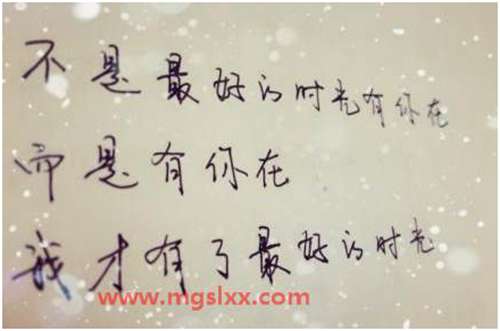 不是最好的时光有你在
而是有你在
我才有了最好的时光
www.mgslxx.com